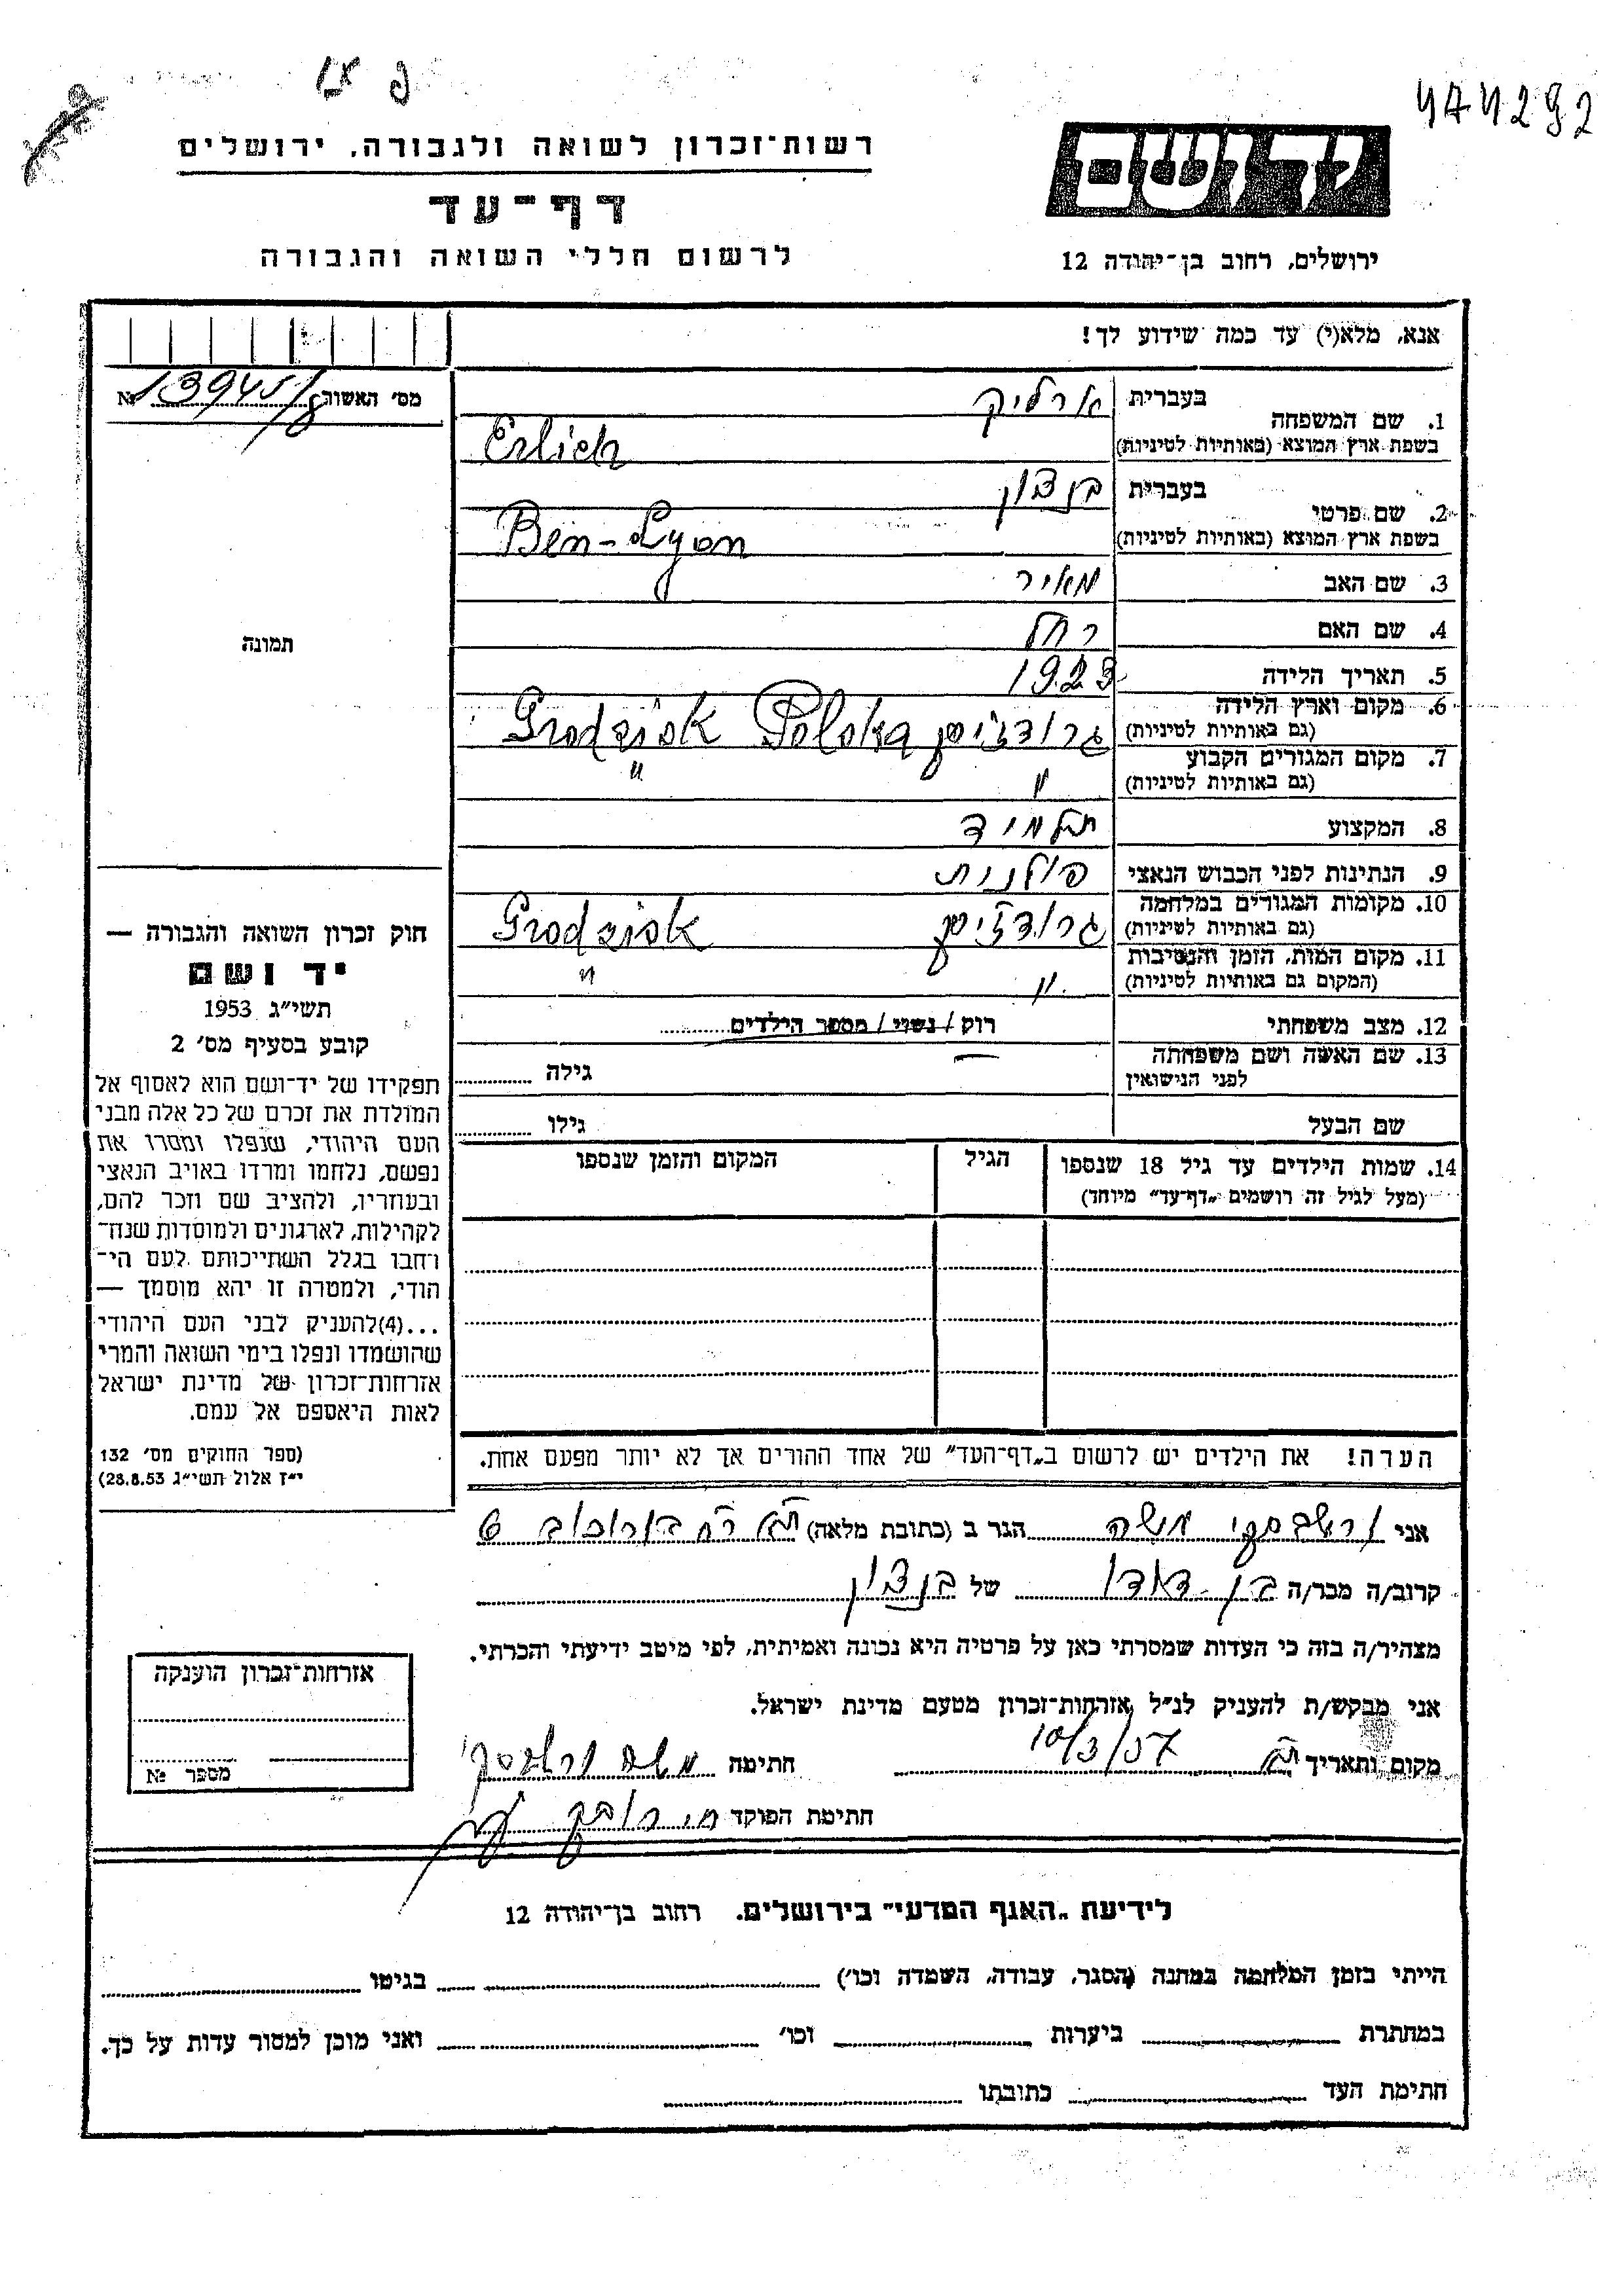 474292
יד ושם
ירושלים, רחוב בן־יהודה 12
רשות־זכרון לשואה ולגבורה, ירושלים
דף־עד
לרשום חללי השואה והגבורה
אנא, מלא(י) עד כמה שידוע לך!
מס׳ האשור № 13945/8
1. שם המשפחה בעברית ארליק
בשפת ארץ המוצא (באותיות לטיניות) Erlich
2. שם פרטי בעברית בן ציון
בשפת ארץ המוצא (באותיות לטיניות) Ben-Zyon
3. שם האב מאיר
4. שם האם רחל
5. תאריך הלידה 1923
6. מקום וארץ הלידה
(גם באותיות לטיניות) גרודזיסק Grodzisk Polska
7. מקום המגורים הקבוע
(גם באותיות לטיניות) " "
8. המקצוע תלמיד
9. הנתינות לפני הכבוש הנאצי פולנית
10. מקומות המגורים במלחמה
(גם באותיות לטיניות) גרודזיסק Grodzisk
11. מקום המות, הזמן והנסיבות
(המקום גם באותיות לטיניות) " "
12. מצב משפחתי רוק / נשוי / מספר הילדים
13. שם האשה ושם משפחתה
לפני הנישואין גילה
שם הבעל גילו
14. שמות הילדים עד גיל 18 שנספו
(מעל לגיל זה רושמים „דף־עד״ מיוחד)
הגיל
המקום והזמן שנספו
הערה! את הילדים יש לרשום ב„דף־העד״ של אחד ההורים אך לא יותר מפעם אחת.
תמונה
חוק זכרון השואה והגבורה —
יד ושם
תשי״ג 1953
קובע בסעיף מס׳ 2
תפקידו של יד־ושם הוא לאסוף אל
המולדת את זכרם של כל אלה מבני
העם היהודי, שנפלו ומסרו את
נפשם, נלחמו ומרדו באויב הנאצי
ובעוזריו, ולהציב שם וזכר להם,
לקהילות, לארגונים ולמוסדות שנח־
רחבו בגלל השתייכותם לעם הי־
הודי, ולמטרה זו יהא מוסמך —
...(4)להעניק לבני העם היהודי
שהושמדו ונפלו בימי השואה והמרי
אזרחות־זכרון של מדינת ישראל
לאות היאספם אל עמם.
(ספר החוקים מס׳ 132
י״ז אלול תשי״ג 28.8.53)
אני ורשבסקי משה הגר ב (כתובת מלאה) ת״א רח׳ בורוכוב 6
קרוב/ה מכר/ה בן דודו של בן ציון
מצהיר/ה בזה כי העדות שמסרתי כאן על פרטיה היא נכונה ואמיתית, לפי מיטב ידיעתי והכרתי.
אני מבקש/ת להעניק לנ״ל אזרחות־זכרון מטעם מדינת ישראל.
מקום ותאריך ת״א 10/3/57 חתימה משה ורשבסקי
חתימת הפוקד
אזרחות־זכרון הוענקה
מספר №
לידיעת „האגף המדעי״ בירושלים. רחוב בן־יהודה 12
הייתי בזמן המלחמה במחנה (הסגר, עבודה, השמדה וכו׳) בגיטו
במחתרת ביערות וכו׳ ואני מוכן למסור עדות על כך.
חתימת העד כתובתו